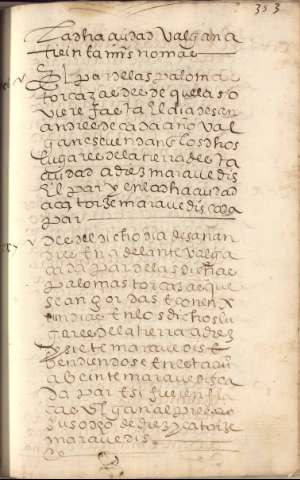 353
la dha ciudad valgan a
treinta mrs no mas
El par de las palomas
torcazas desde que las o
viere fasta el dia de san
andres de cada año val
gan e se vendan en los dhos
lugares de la tierra desta
ciudad a diez maravedis
El par y en la dha ciudad
a catorze maravedis cada
par
desde el dicho dia de san an
dres en adelante valga
cada par de las dichas
palomas torcazas que
sean gordas e conen
en dias en los dichos lu
gares de la tierra a diez
y siete maravedis e
bendiendose en esta ciu
a beinte maravedis ca
da par e si fueren fla
cas valgan al precio
suso dho de diez y catorze
maravedis